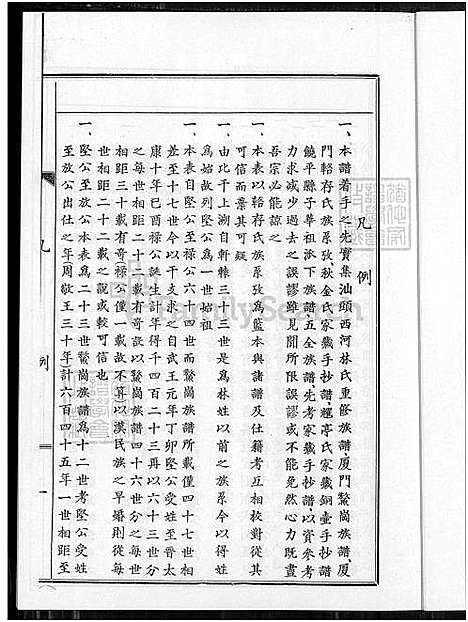 凡例
一、本譜着手之先實集汕頭西河林氏重修族譜、厦門鰲崗族譜、厦
門輅存氏族系攷、秋金氏家藏手抄譜、耀亭氏家藏銅壷手抄譜
饒平縣子華祖派下族譜、五全族譜、先考家藏手抄譜、以資參考
力求減少過去之誤謬雖見聞所限誤謬或不能免然心力既盡
吾宗必能諒之
一、本表以輅存氏族系攷爲藍本與諸譜及仕籍考互相校對從其
可信而棄其可疑
一、由比干上溯自軒轅三十三世是爲林姓以前之族系今以得姓
爲始故列堅公爲一世始祖
一、本表自堅公至祿公六十四世而鰲崗族譜所載僅四十七世相
差至十七世今以干支求之自武王元年丁卯堅公受姓至晋太
康十年已酉祿公誕生計年得千四百二十三再以六十三世分
之每世相距二十二載有奇設以鰲崗族譜四十六世分之每世
相距三十載有奇(祿公僅一載故不算)以漢民族之早婚則從每
世相距二十二載之說或較可信也
一、堅公至放公本表爲二十三世鰲崗族譜爲十二世考堅公受姓
至放公出仕之年周敬王三十年)計六百四十五年一世相距至
凡
例
一
FamilySearch